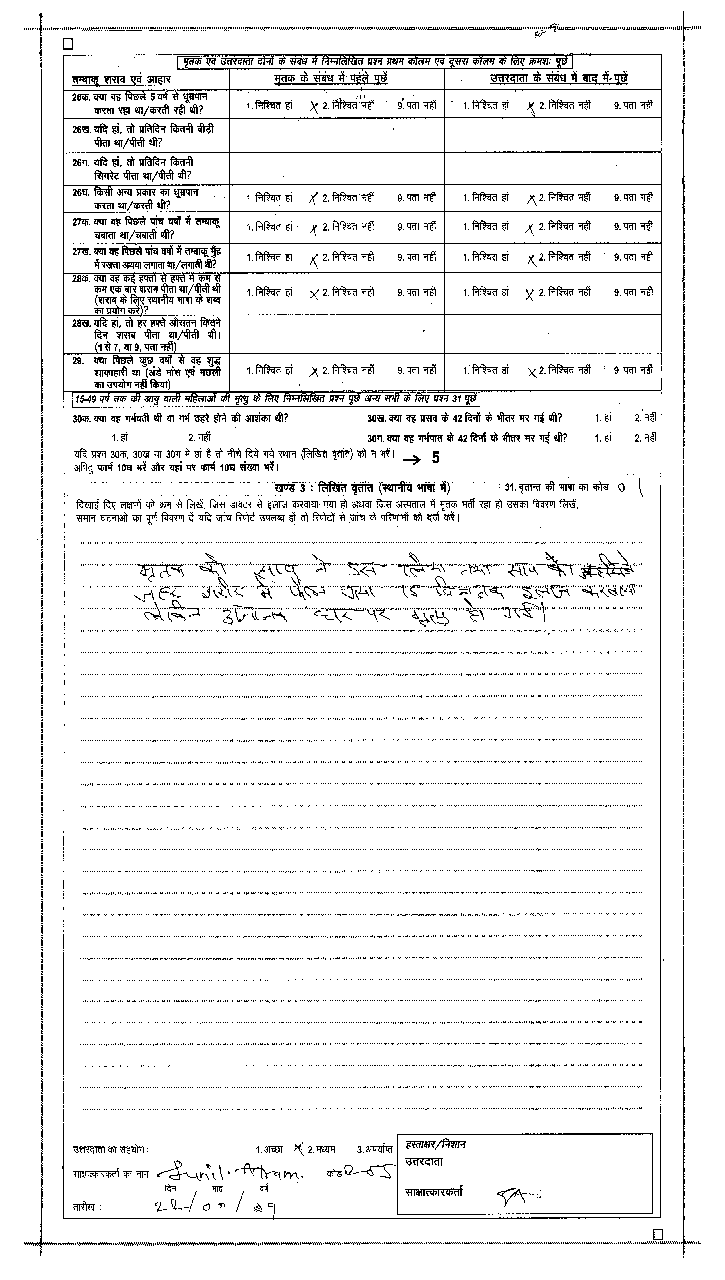 मृतक एवं उत्तरदाता दोनों के संबंध में निम्नलिखित प्रश्न प्रथम कोलम एवं दूसरा कोलम के लिए क्रमशः पूछें
तम्बाकू शराब एवं आहार मृतक के संबंध में पहले पूछें उत्तरदाता के संबंध में बाद में पूछें
26क. क्या वह पिछले 5 वर्ष से धूम्रपान करता रहा था/करती रही थी? 1. निश्चित हां 2. निश्चित नहीं 9. पता नहीं 1. निश्चित हां 2. निश्चित नहीं 9. पता नहीं
26ख. यदि हां, तो प्रतिदिन कितनी बीड़ी पीता था/पीती थी?
26ग. यदि हां, तो प्रतिदिन कितनी सिगरेट पीता था/पीती थी?
26घ. किसी अन्य प्रकार का धूम्रपान करता था/करती थी? 1. निश्चित हां 2. निश्चित नहीं 9. पता नहीं 1. निश्चित हां 2. निश्चित नहीं 9. पता नहीं
27क. क्या वह पिछले पांच वर्षों में तम्बाकू चबाता था/चबाती थी? 1. निश्चित हां 2. निश्चित नहीं 9. पता नहीं 1. निश्चित हां 2. निश्चित नहीं 9. पता नहीं
27ख. क्या वह पिछले पांच वर्षों में तम्बाकू मुँह में रखता अथवा लगाता था/लगाती थी? 1. निश्चित हां 2. निश्चित नहीं 9. पता नहीं 1. निश्चित हां 2. निश्चित नहीं 9. पता नहीं
28क. क्या वह कई हफ्तों से हफ्ते में कम से कम एक बार शराब पीता था/पीती थी (शराब के लिए स्थानीय भाषा के शब्द का प्रयोग करें)? 1. निश्चित हां 2. निश्चित नहीं 9. पता नहीं 1. निश्चित हां 2. निश्चित नहीं 9. पता नहीं
28ख. यदि हां, तो हर हफ्ते औसतन कितने दिन शराब पीता था/पीती थी। (1 से 7, या 9, पता नहीं)
29. क्या पिछले कुछ वर्षों से वह शुद्ध शाकाहारी था (अंडे मांस एवं मछली का उपयोग नहीं किया) 1. निश्चित हां 2. निश्चित नहीं 9. पता नहीं 1. निश्चित हां 2. निश्चित नहीं 9. पता नहीं
15-49 वर्ष तक की आयु वाली महिलाओं की मृत्यु के लिए निम्नलिखित प्रश्न पूछें अन्य सभी के लिए प्रश्न 31 पूछें
30क. क्या वह गर्भवती थी या गर्भ ठहरे होने की आशंका थी? 30ख. क्या वह प्रसव के 42 दिनों के भीतर मर गई थी? 1. हां 2. नहीं
1. हां 2. नहीं 30ग. क्या वह गर्भपात के 42 दिनों के भीतर मर गई थी? 1. हां 2. नहीं
यदि प्रश्न 30क, 30ख या 30ग में हां है तो नीचे दिये गये स्थान (लिखित वृतांत) को न भरें। → 5
अपितु फार्म 10घ भरें और यहां पर फार्म 10घ संख्या भरें।
खण्ड 3 : लिखित वृतांत (स्थानीय भाषा में) 31. वृतान्त की भाषा का कोड 01
दिखाई दिए लक्षणों को क्रम से लिखें, जिस डाक्टर से इलाज करवाया गया हो अथवा जिस अस्पताल में मृतक भर्ती रहा हो उसका विवरण लिखें,
समान घटनाओं का पूर्ण विवरण दें यदि जांच रिपोर्ट उपलब्ध हो तो रिपोर्टों से जांच के परिणामों को दर्ज करें।
मृतक को साप ने डस लिया तथा साप का
जहर शरीर में फैल गया इलाज करवाया
लेकिन अचानक घर पर मृत्यु हो गई।
उत्तरदाता का सहयोग : 1. अच्छा 2. मध्यम 3. अपर्याप्त
साक्षात्कारकर्ता का नाम Sunil कोड
दिन माह वर्ष
तारीख : 22/
हस्ताक्षर/निशान
उत्तरदाता
साक्षात्कारकर्ता